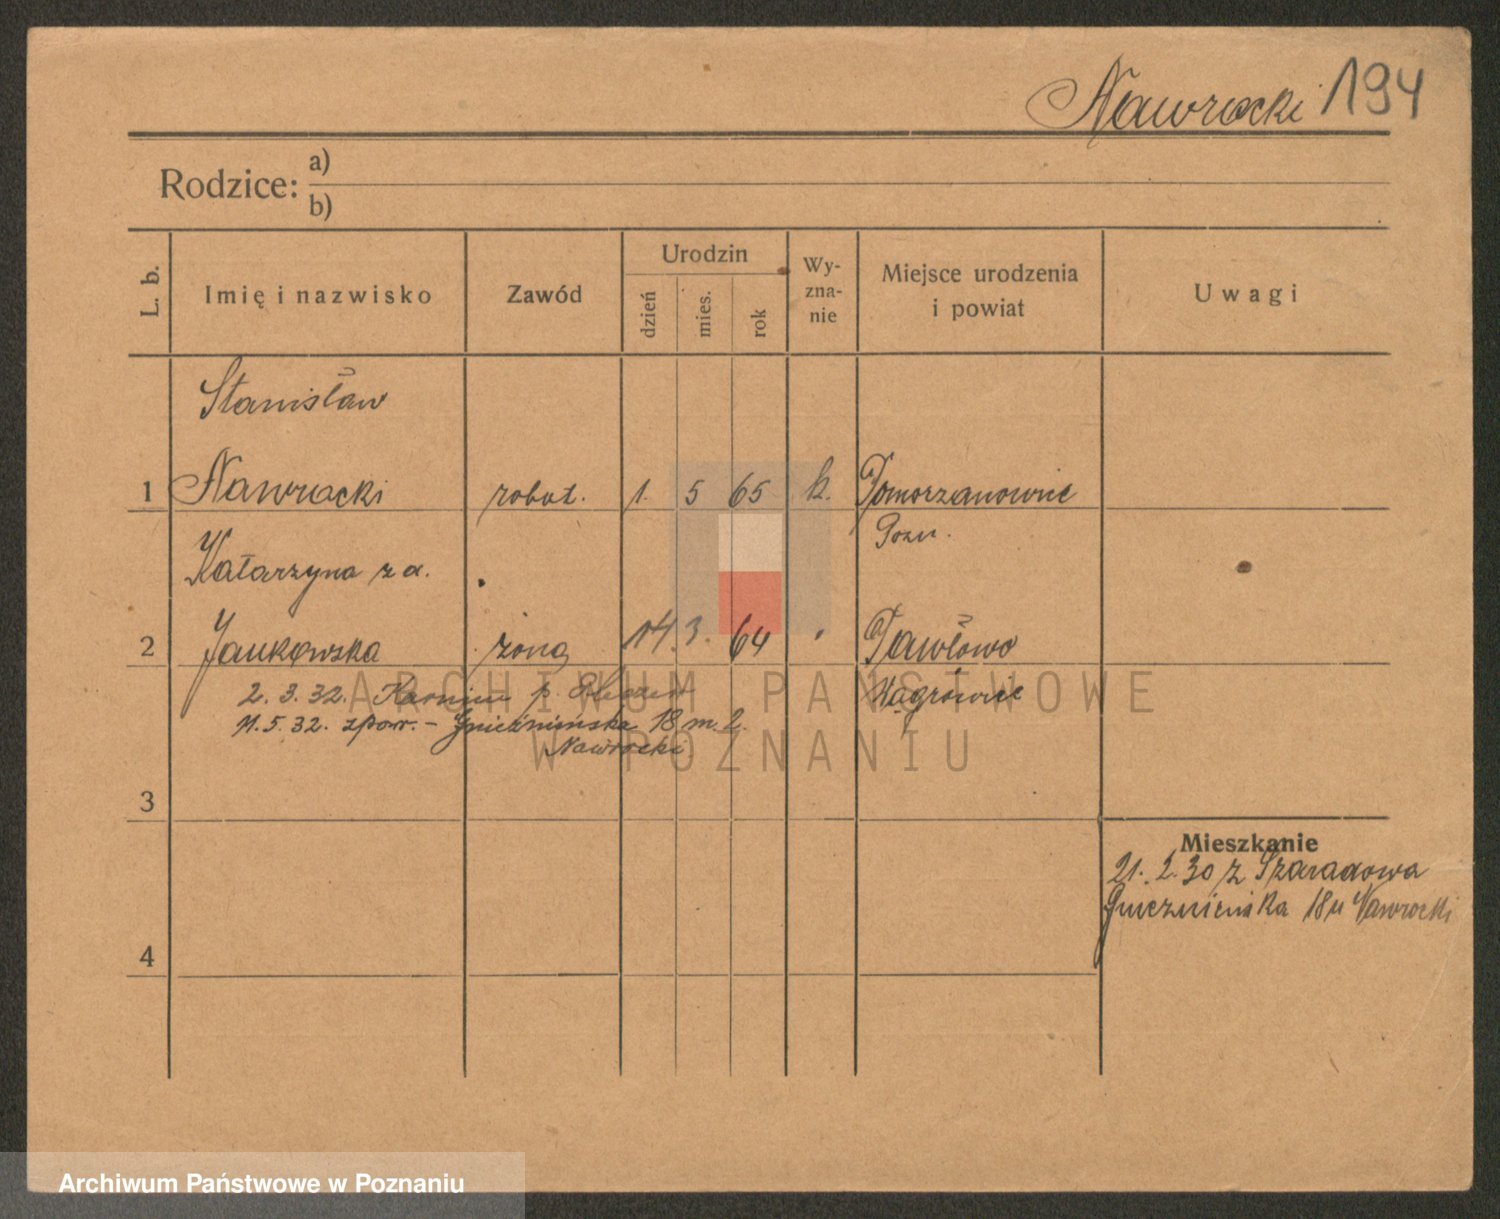 Nawrocki 194
Rodzice: a)
b)
L. b.
Imię i nazwisko
Zawód
Urodzin
dzień
mies.
rok
Wy-
zna-
nie
Miejsce urodzenia
i powiat
Uwagi
Stanisław
1 Nawrocki robot. 1. 5 65 k. Pomorzanowice
Pozn.
Katarzyna z d.
2 Jankowska żona 14. 3. 64 Pawłowo
Wągrowiec
2. 3. 32. p.
11. 5. 32. zpow. - Gnieźnieńska 18 m. 2.
Nawrocki
3
Mieszkanie
21. 2. 30 z Szaradowa
Gnieźnieńska 18 u Nawrocki
4
ARCHIWUM PAŃSTWOWE
W POZNANIU
Archiwum Państwowe w Poznaniu